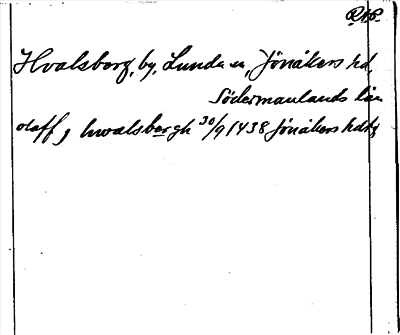 Hvalsberg, by, Lunda sn, Jönåkers hd,
Södermanlands län
olaff j hwalsbergh 30/9 1438 Jönåkers hdtg